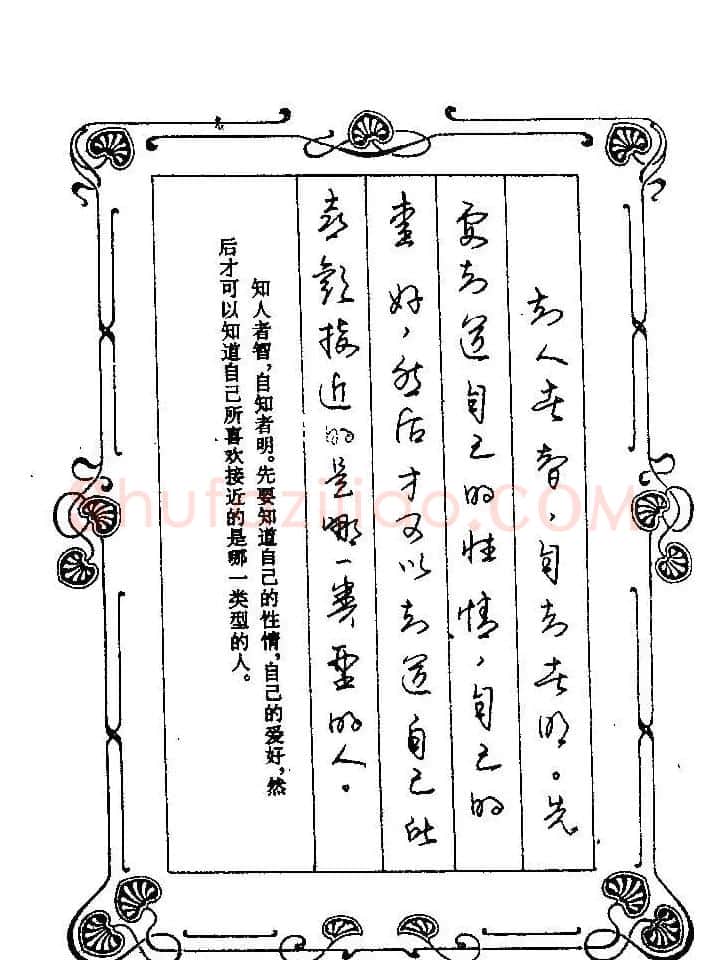 知人者智，自知者明。先
要知道自己的性情，自己的
爱好，然后才可以知道自己所
喜欢接近的是哪一类型的人。
知人者智，自知者明。先要知道自己的性情，自己的爱好，然
后才可以知道自己所喜欢接近的是哪一类型的人。
Shufaziliao.COM